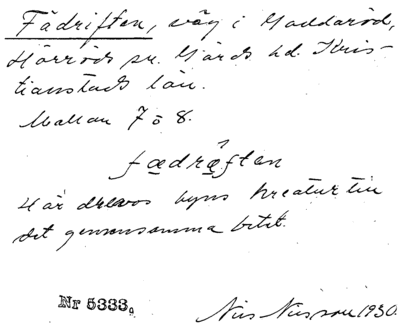 Fädriften, väg i Maddaröd,
Hörröds sn. Gärds hd. Kris-
tianstads län.
Mellan 7 o 8.
fædræften
Här drevos byns kreatur till
det gemensamma betet.
Nr 5333.
Nils Nilsson 1930.